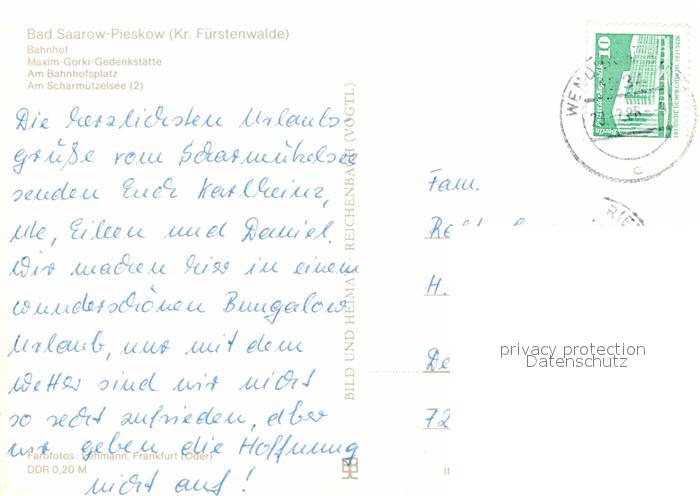 Bad Saarow-Pieskow (Kr. Fürstenwalde)
Bahnhof
Maxim-Gorki-Gedenkstätte
Am Bahnhofsplatz
Am Scharmützelsee (2)
Die herzlichsten Urlaubs-
grüße vom Scharmützelsee
senden Euch Karlheinz,
Ute, Eileen und Daniel.
Wir machen hier in einem
wunderschönen Bungalow
Urlaub, nur mit dem
Wetter sind wir nicht
so recht zufrieden, aber
wir geben die Hoffnung
nicht auf!
Farbfotos: Lehmann, Frankfurt (Oder)
DDR 0,20 M
BILD UND HEIMAT REICHENBACH (VOGTL)
10
Berlin
DEUTSCHE DEMOKRATISCHE REPUBLIK
WEND
c
Fam.
H.
De
72
privacy protection
Datenschutz